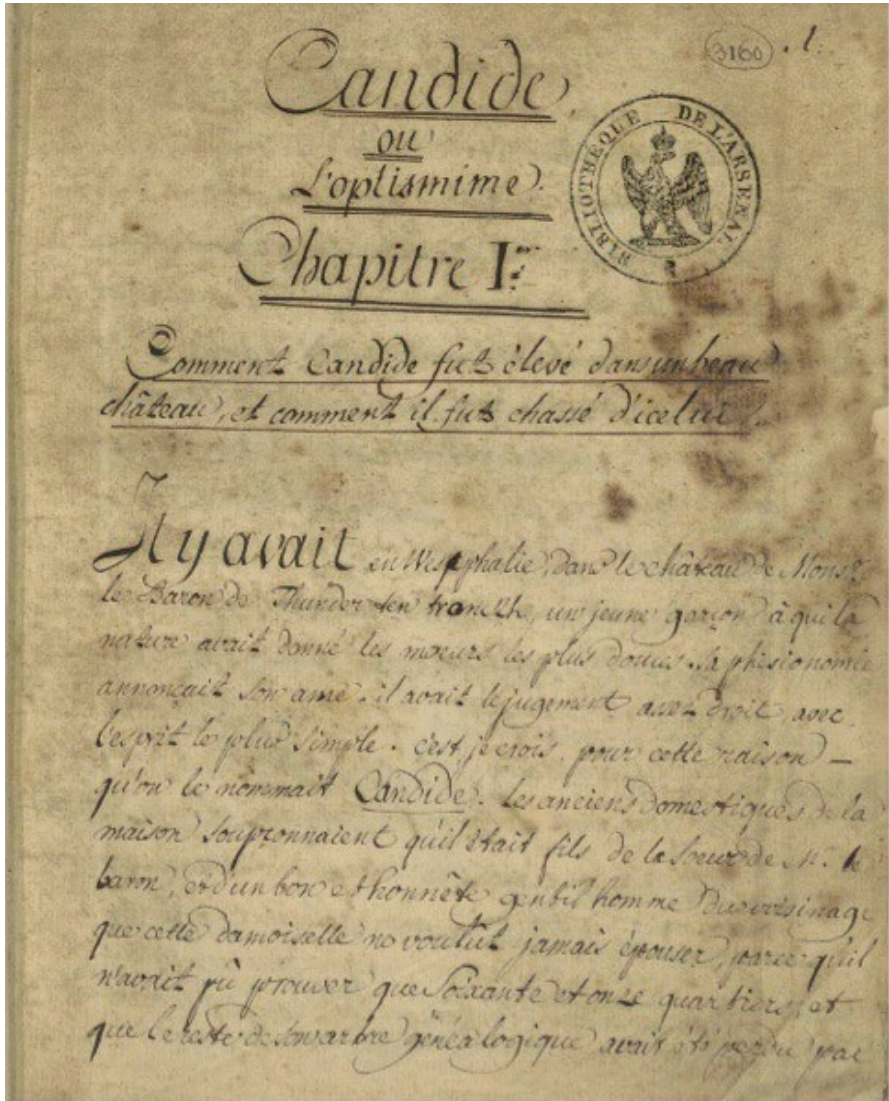 3160 . 1.
Candide
ou
L'optismime.
BIBLIOTHEQUE DE L'ARSENAL
Chapitre I.er
Comment Candide fut élevé dans un beau
château, et comment il fut chassé d'icelui.
Il y avait en Westphalie, dans le château de Monsr.
le Baron de Thunder ten tronckh, un jeune garçon à qui la
nature avait donné les moeurs les plus douces. sa phisionomie
annonçait son ame. il avait le jugement assez droit, avec
l'esprit le plus simple. c'est, je crois, pour cette raison —
qu'on le nommait Candide. les anciens domestiques de la
maison soupçonnaient qu'il était fils de la soeur de Mr. le
baron, et d'un bon et honnête gentil homme du voisinage
que cette damoiselle ne voulut jamais épouser, parce qu'il
n'avait pû prouver que soixante et onze quartiers, et
que le reste de son arbre généalogique avait été perdu par